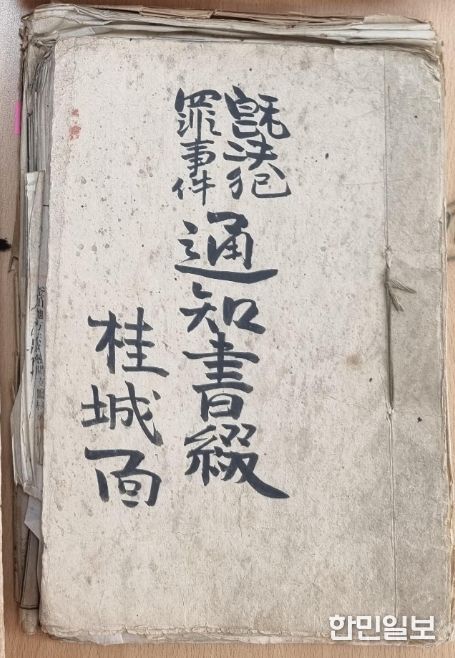 既決犯
罪事件
通知書綴
桂城面
한민일보